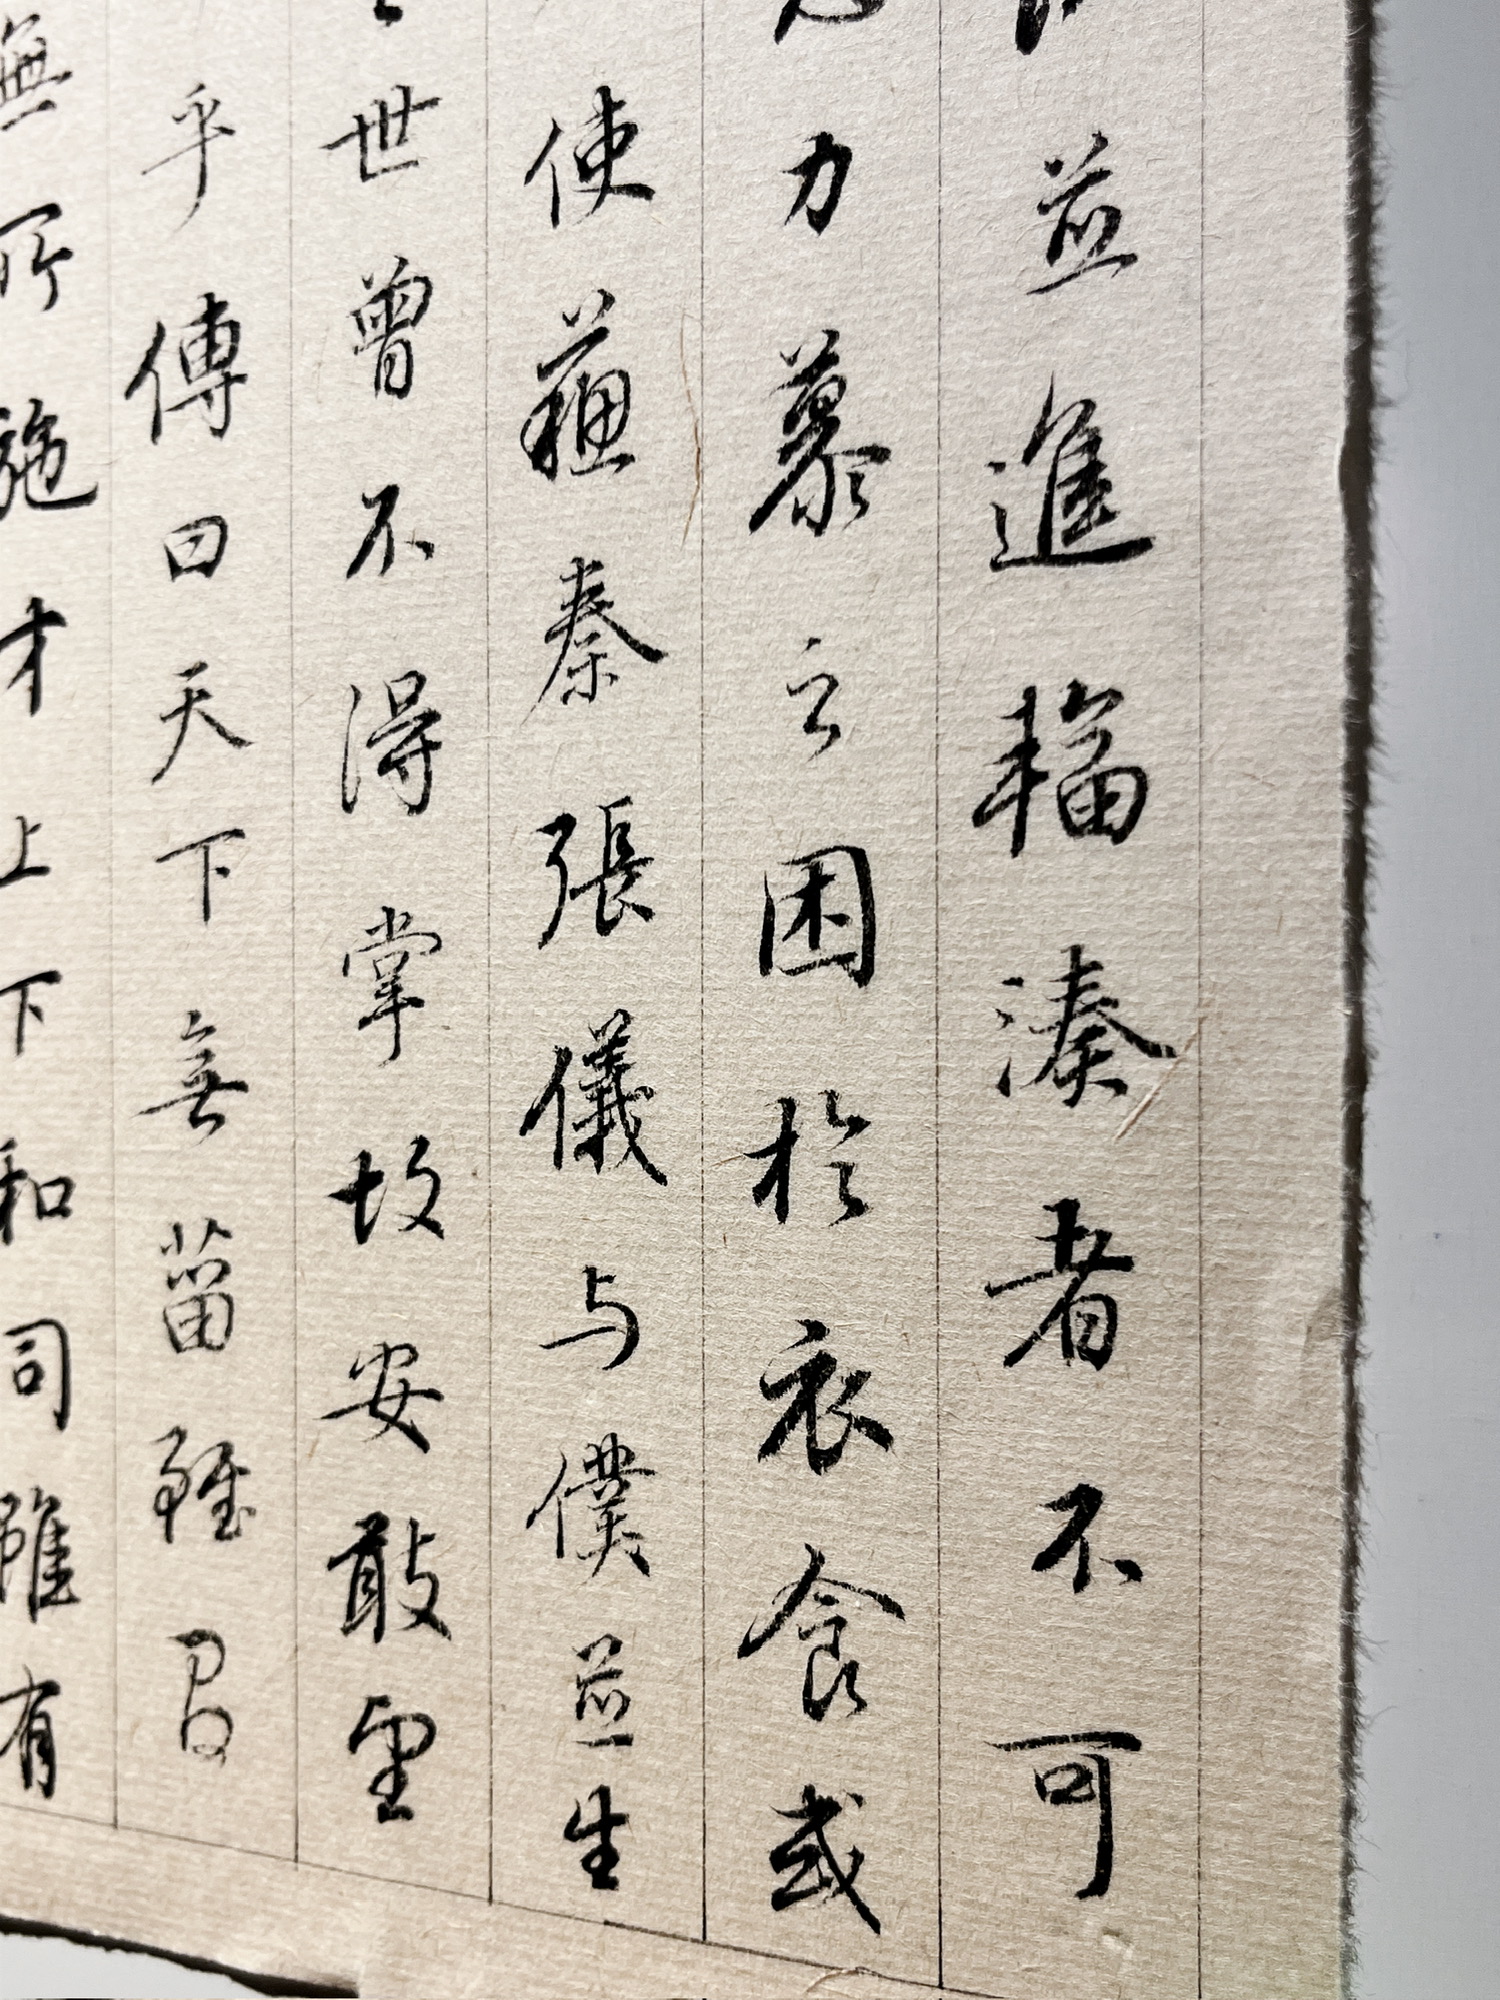 並進輻湊者不可
力慕之困於衣食或
使蘇秦張儀与僕並生
世曾不得掌故安敢望
乎傳曰天下無菑雖
無所施才上下和同雖有